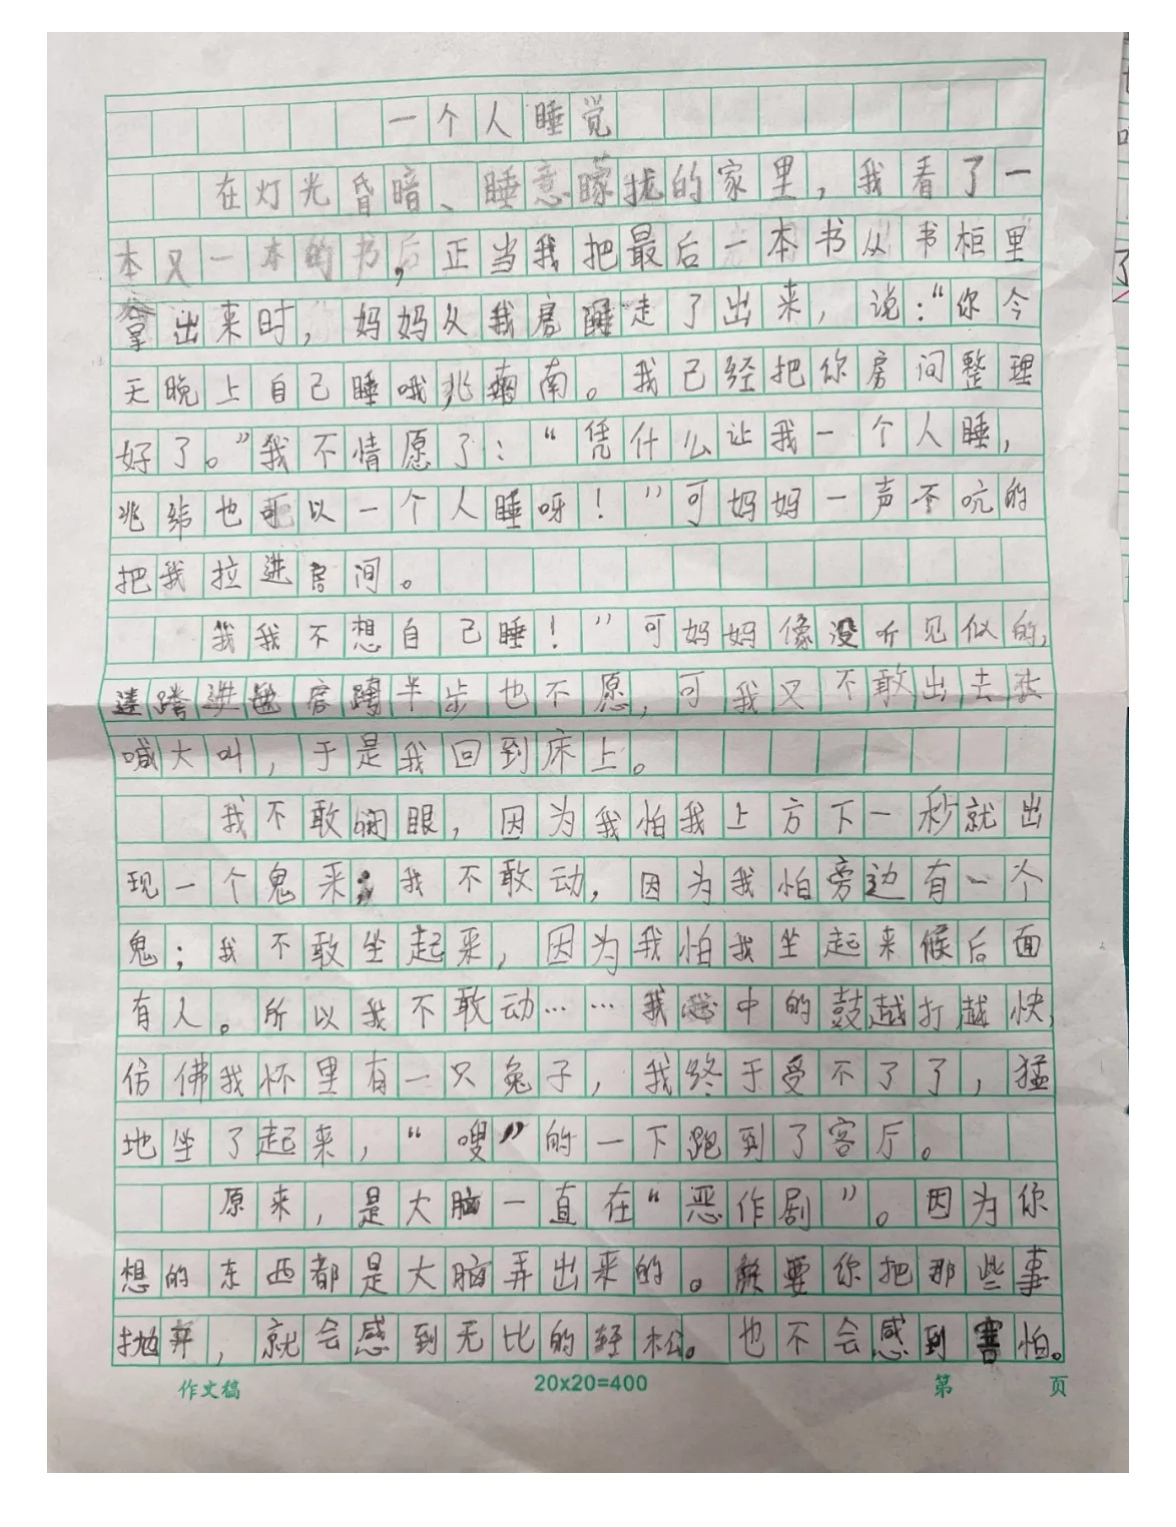 一个人睡觉
在灯光昏暗、睡意朦拢的家里，我看了一
本又一本的书后，正当我把最后一本书从书柜里
拿出来时，妈妈从我房 走了出来，说：“你今
天晚上自己睡哦兆 南。我已经把你房间整理
好了。”我不情愿了：“凭什么让我一个人睡，
兆纬也可以一个人睡呀！”可妈妈一声不吭的
把我拉进房间。
我我不想自己睡！”可妈妈像没听见似的，
连跨进 房 半步也不愿，可我又不敢出去大
喊大叫，于是我回到床上。
我不敢 眼，因为我怕我上方下一秒就出
现一个鬼来；我不敢动，因为我怕旁边有一个
鬼；我不敢坐起来，因为我怕我坐起来候后面
有人。所以我不敢动……我心中的鼓越打越快，
仿佛我怀里有一只兔子，我终于受不了了，猛
地坐了起来，“嗖”的一下跑到了客厅。
原来，是大脑一直在“恶作剧”。因为你
想的东西都是大脑弄出来的。 要你把那些事
抛弃，就会感到无比的轻松。也不会感到害怕。
作文稿
20x20=400
第 页